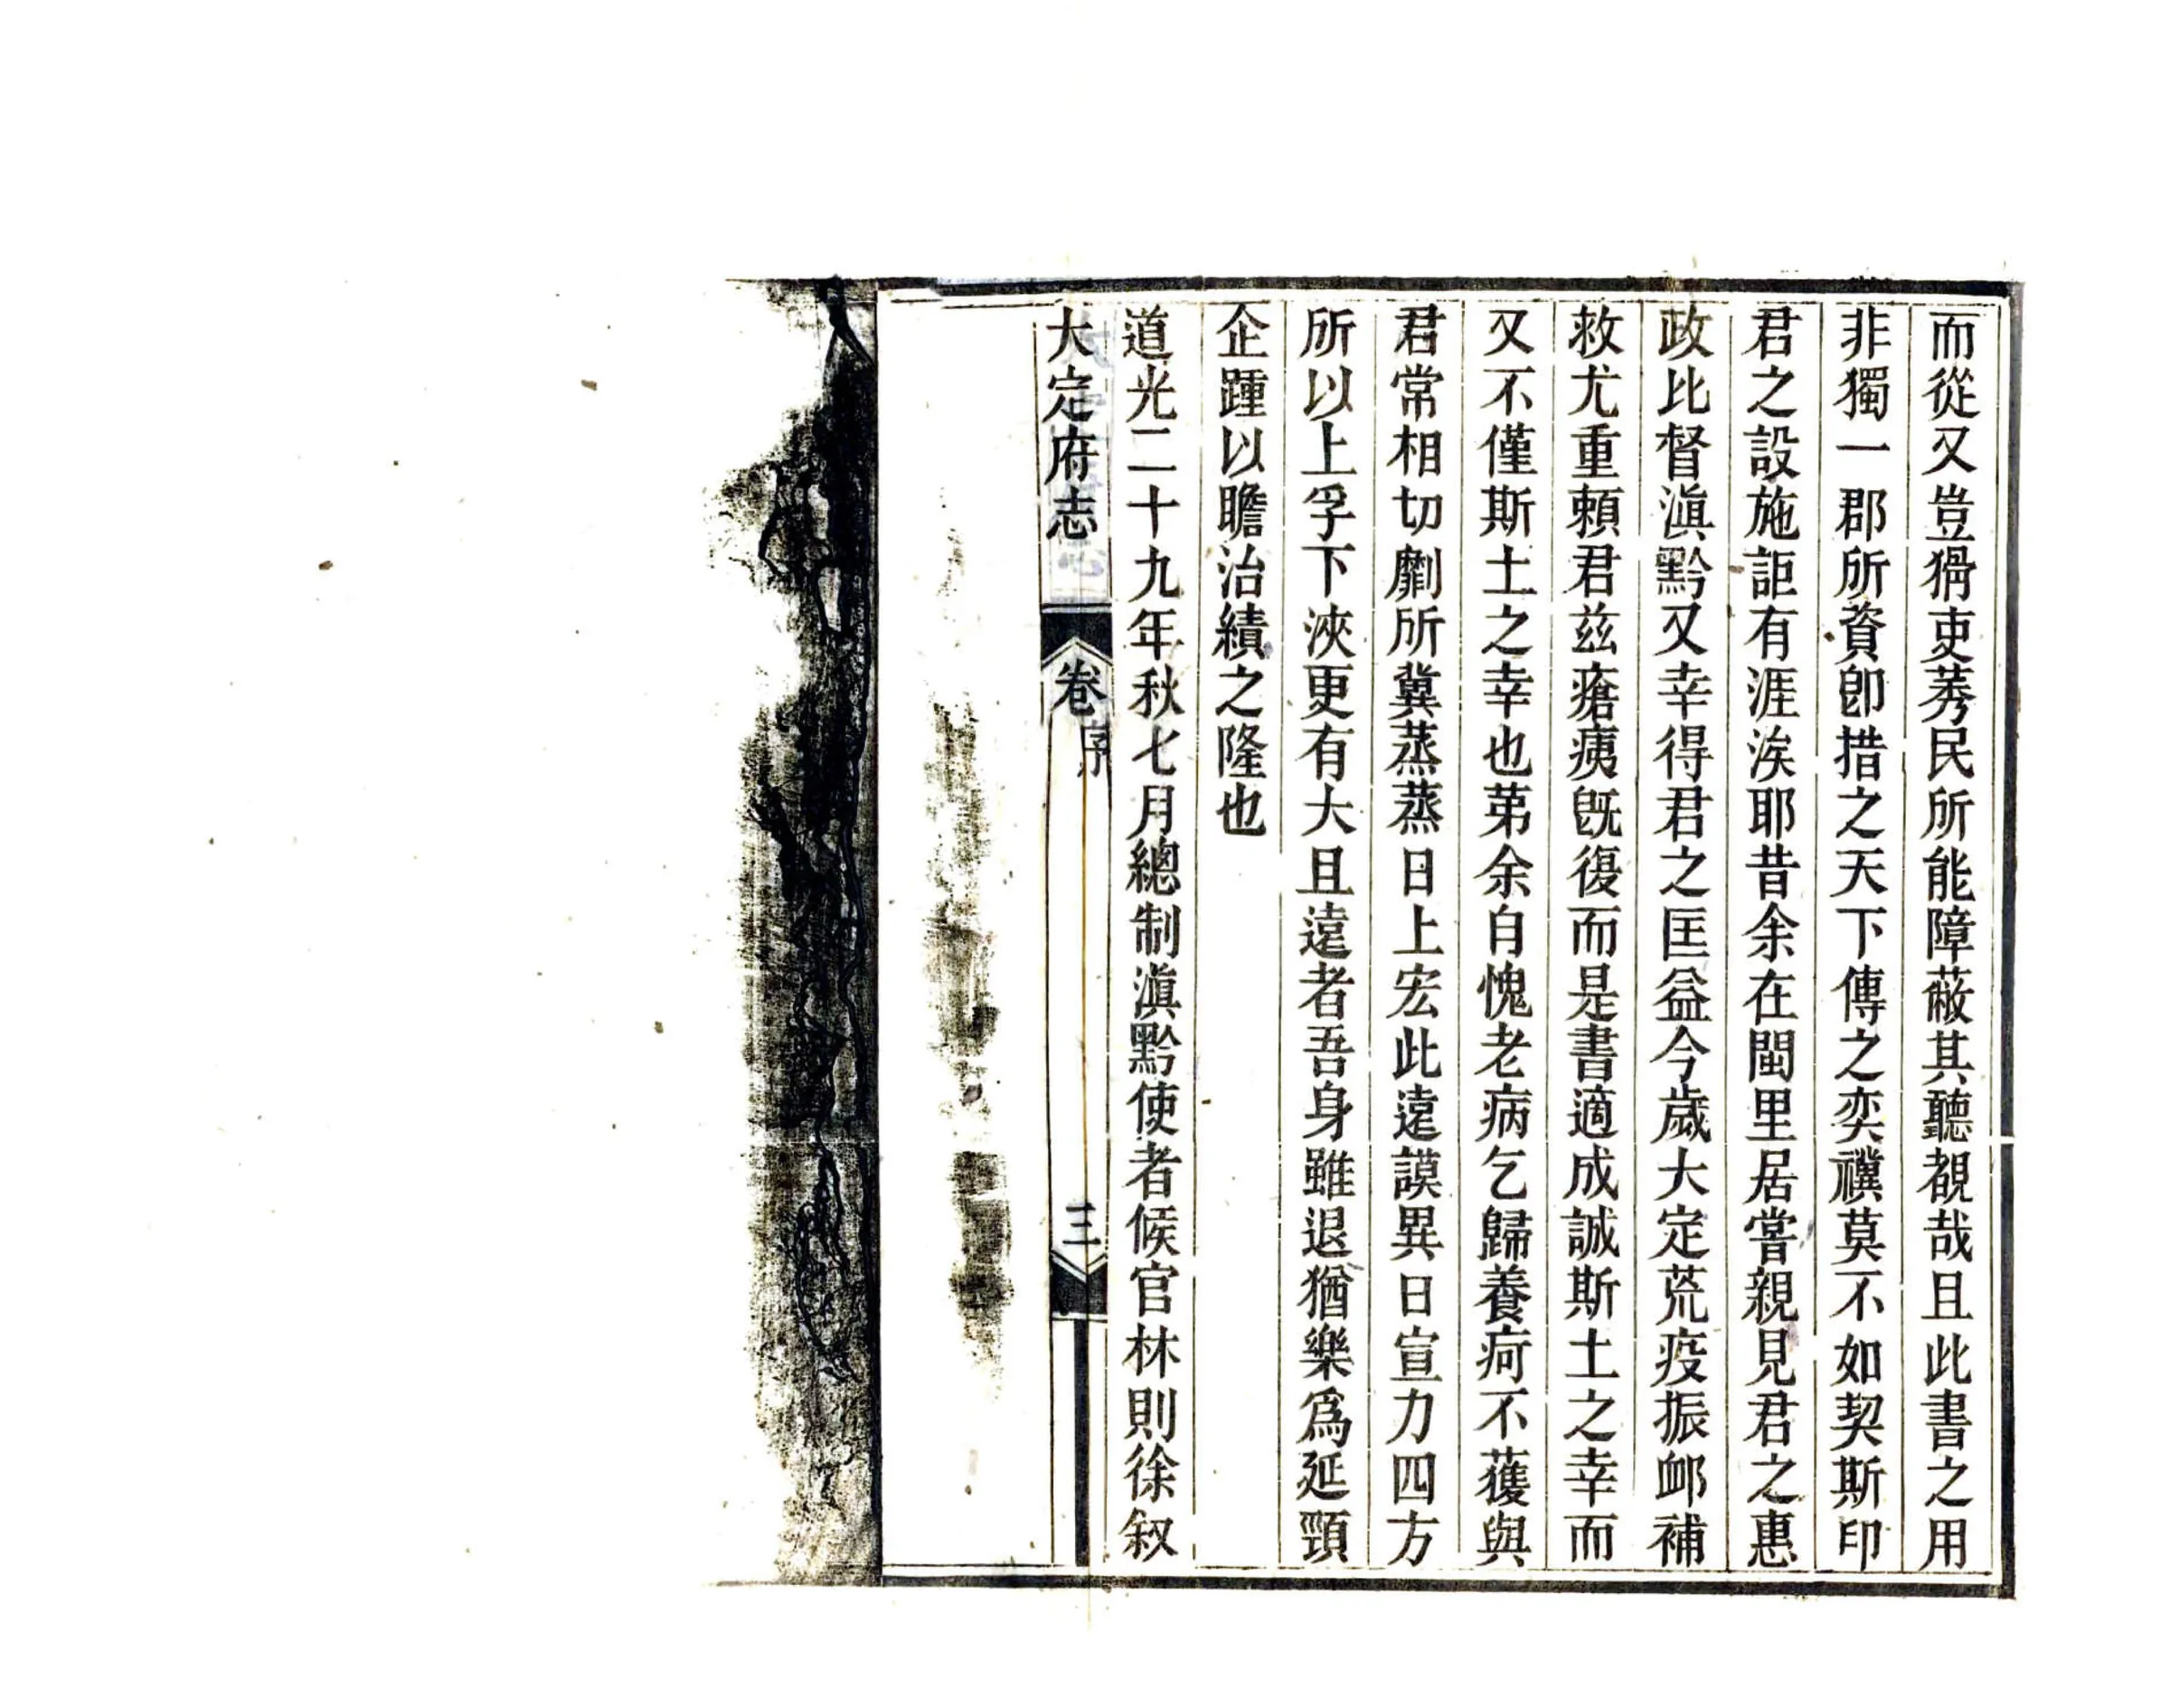 而從又豈猾吏莠民所能障蔽其聽覩哉且此書之用
非獨一郡所資卽措之天下傳之奕禩莫不如契斯印
君之設施詎有涯涘耶昔余在閭里居嘗親見君之惠
政比督滇黔又幸得君之匡益今歲大定荒疫振卹補
救尤重賴君兹瘡痍旣復而是書適成誠斯土之幸而
又不僅斯土之幸也苐余自愧老病乞歸養疴不獲與
君常相切劘所冀蒸蒸日上宏此遠謨異日宣力四方
所以上孚下浹更有大且遠者吾身雖退猶樂爲延頸
企踵以瞻治績之隆也
道光二十九年秋七月總制滇黔使者候官林則徐叙
大定府志
卷
序
三